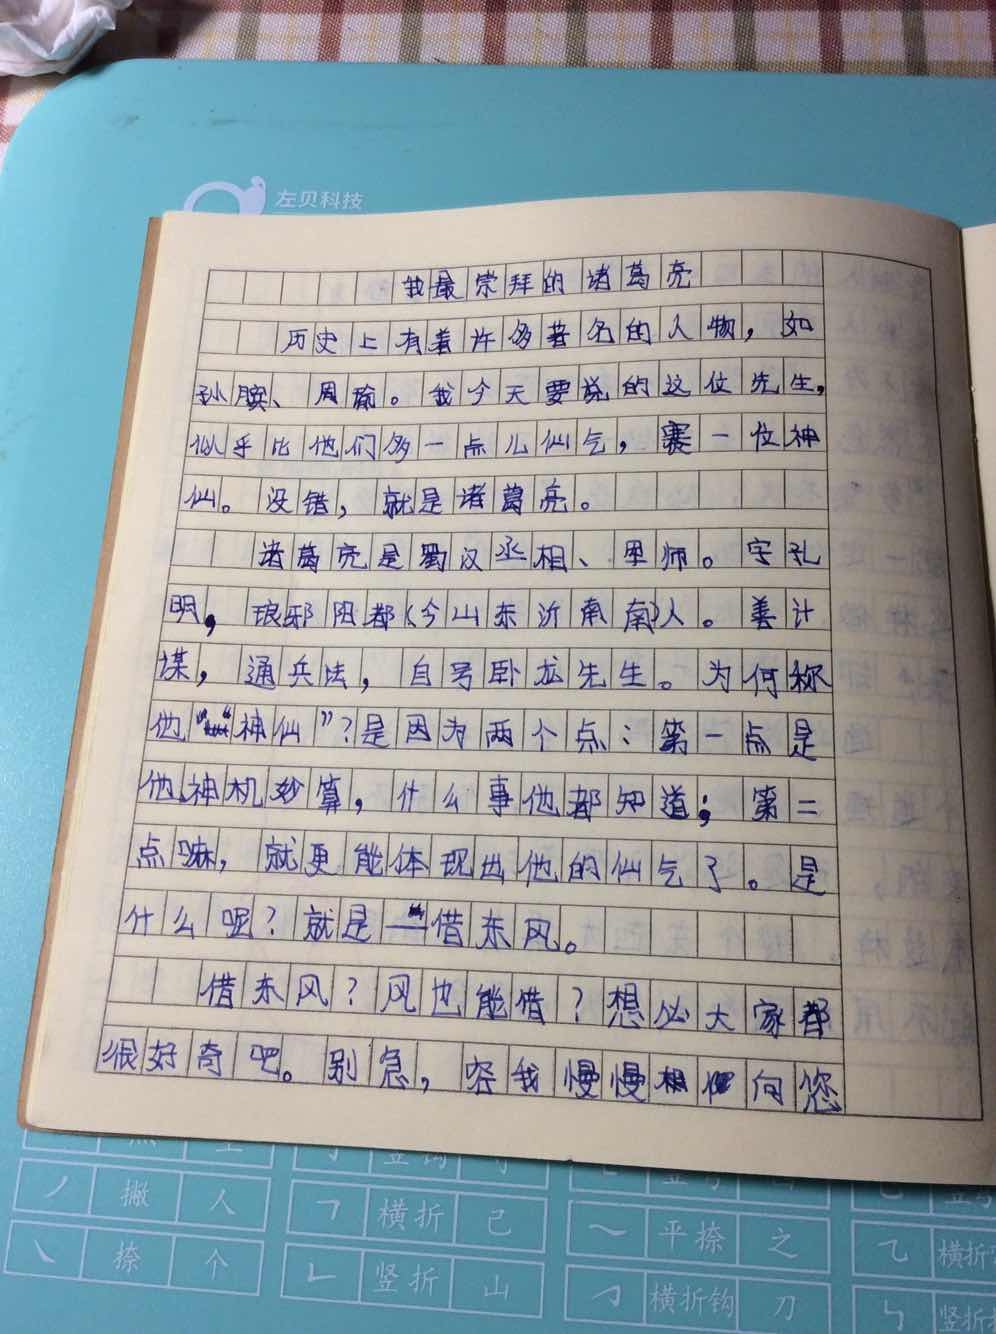 左贝科技
我最崇拜的诸葛亮
历史上有着许多著名的人物，如
孙膑、周瑜。我今天要说的这位先生，
似乎比他们多一点儿仙气，赛一位神
仙。没错，就是诸葛亮。
诸葛亮是蜀汉丞相、军师。字孔
明，琅邪阳都（今山东沂南南）人。善计
谋，通兵法，自号卧龙先生。为何称
他“神仙”？是因为两个点：第一点是
他神机妙算，什么事他都知道；第二
点嘛，就更能体现出他的仙气了。是
什么呢？就是——借东风。
借东风？风也能借？想必大家都
很好奇吧。别急，容我慢慢向您
丿 撇 人
㇏ 捺 个
𠃍 横折 己
𠃊 竖折 山
平捺 之
横折钩 刀
乙